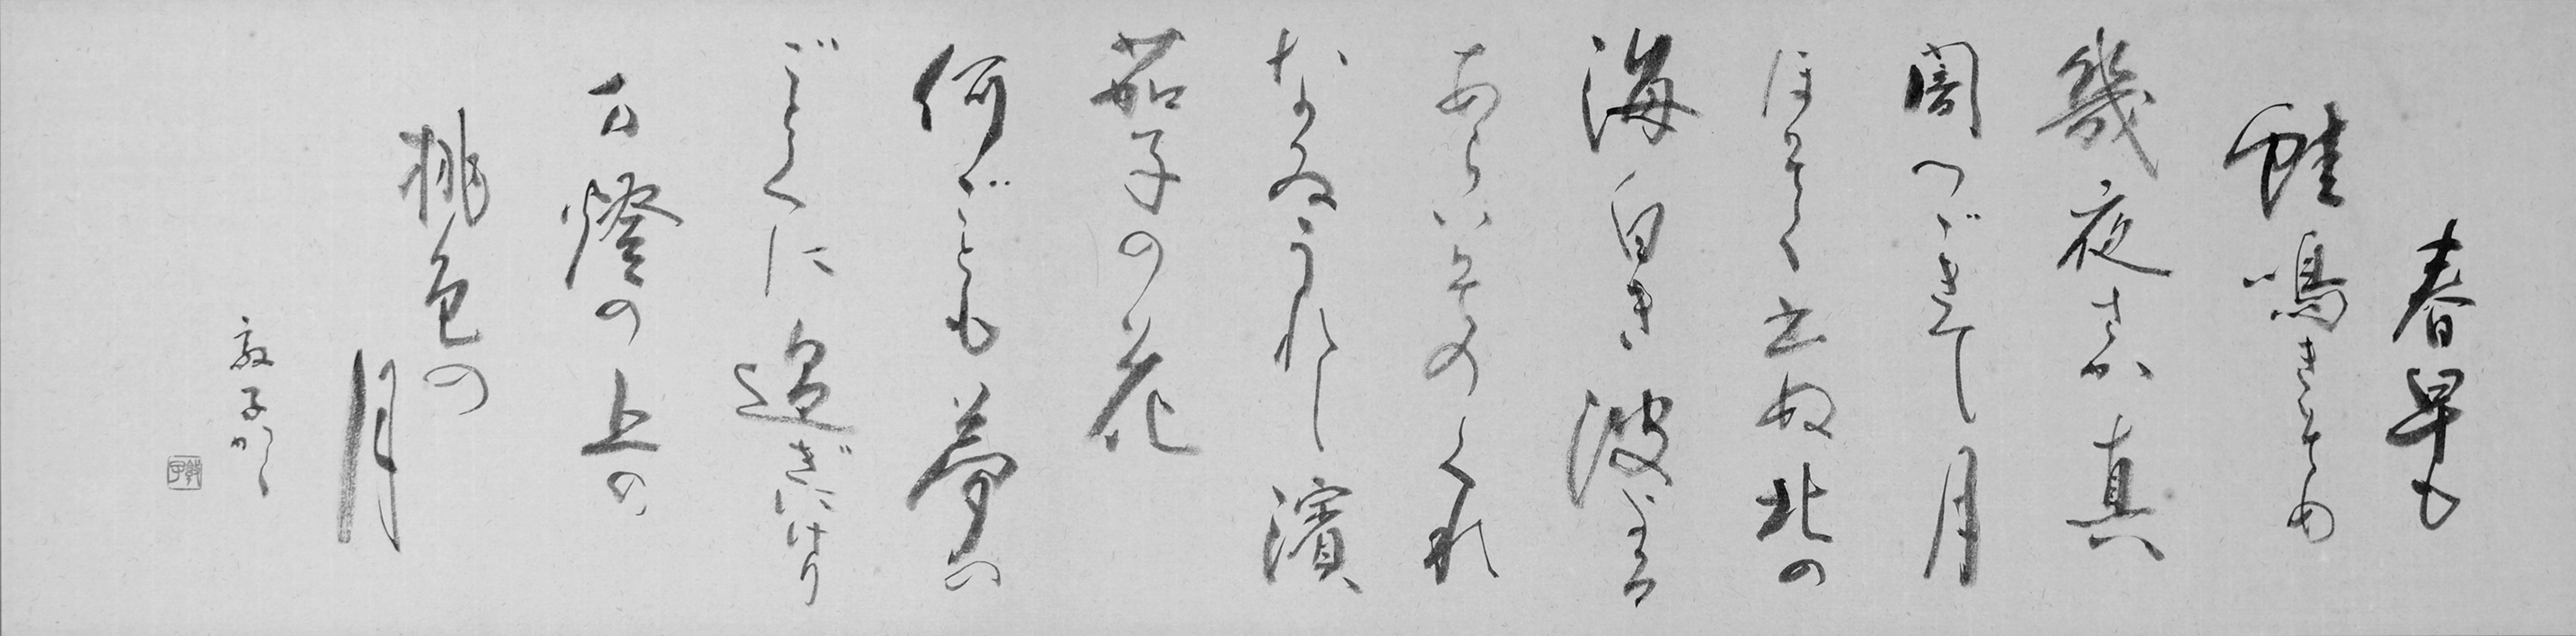 春早も
蛙鳴きそめ
幾夜さか真
闇つゞきて月
ほそく出ぬ北の
海白き波よる
あらいそのくれ
うれし濱
茄子の花
何ごとも夢の
ごとくに過ぎにけり
万燈の上の
桃色の
月
敦子かく